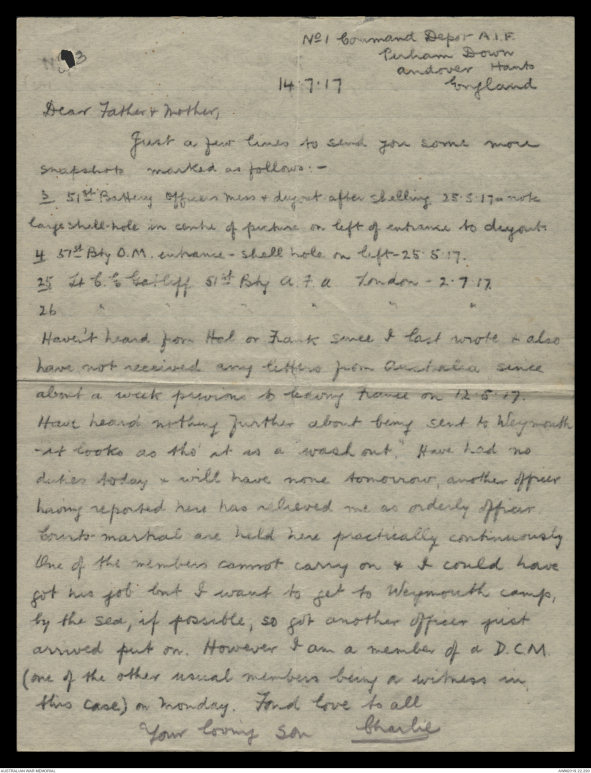 No 1 Command Depot A.I.F.
Perham Down
Andover Hants
England
14.7.17
Dear Father & Mother,
Just a few lines to send you some more
snapshots marked as follows:-
3 51st Battery Officers Mess & dugout after shelling 25.5.17 - note
large shell-hole in centre of picture on left of entrance to dugout
4 51st Bty O.M. entrance - shell hole on left - 25.5.17.
25 Lt C. E Gatliff 51st Bty A.F.A London - 2.7.17
26 " " " " "
Haven't heard from Hal or Frank since I last wrote & also
have not received any letters from Australia since
about a week previous to leaving France on 12.6.17.
Have heard nothing further about being sent to Weymouth
- it looks as tho' it is a "wash out." Have had no
duties today & will have none tomorrow, another officer
having reported here has relieved me as orderly officer.
Courts-martial are held here practically continuously
One of the members cannot carry on & I could have
got his job but I want to get to Weymouth camp,
by the sea, if possible, so got another officer just
arrived put on. However I am a member of a D.C.M.
(one of the other usual members being a witness in
this case) on Monday. Fond love to all
Your loving son Charlie
AUSTRALIAN WAR MEMORIAL